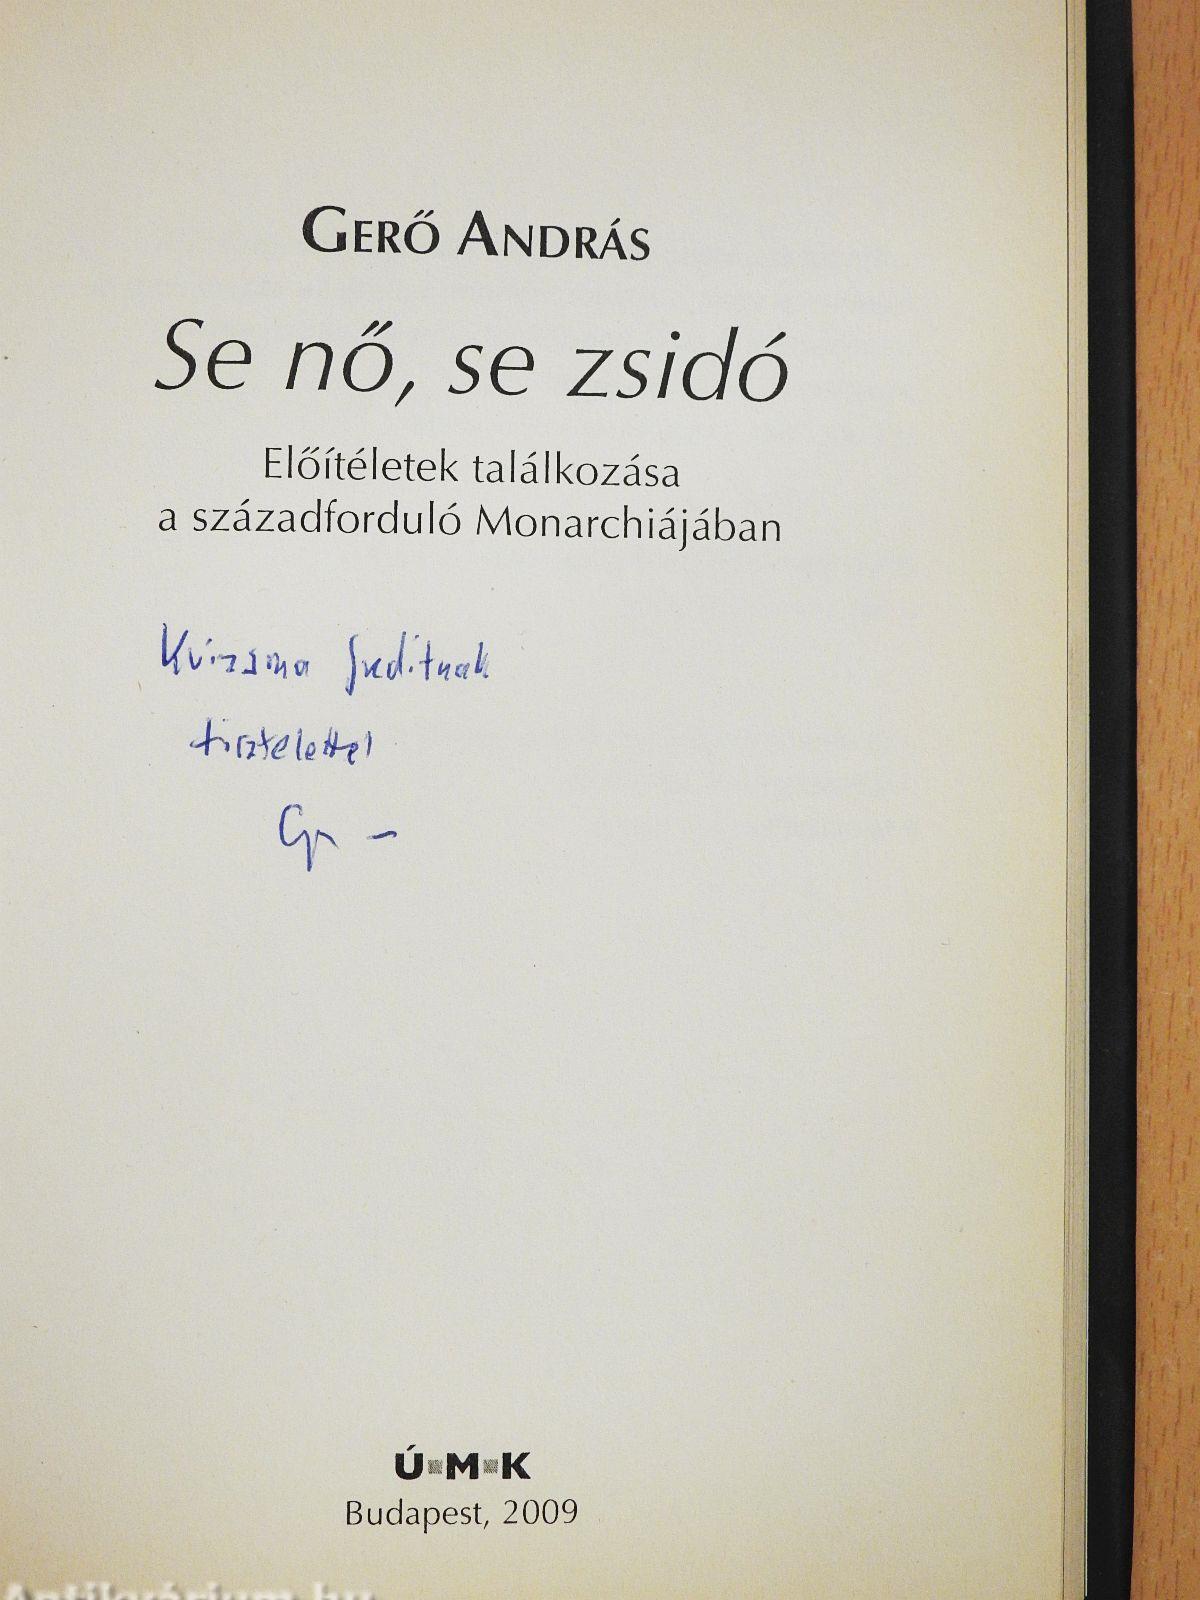 GERŐ ANDRÁS
Se nő, se zsidó
Előítéletek találkozása
a századforduló Monarchiájában
Juditnak
tisztelettel
Ú M K
Budapest, 2009
Antikvárium.hu